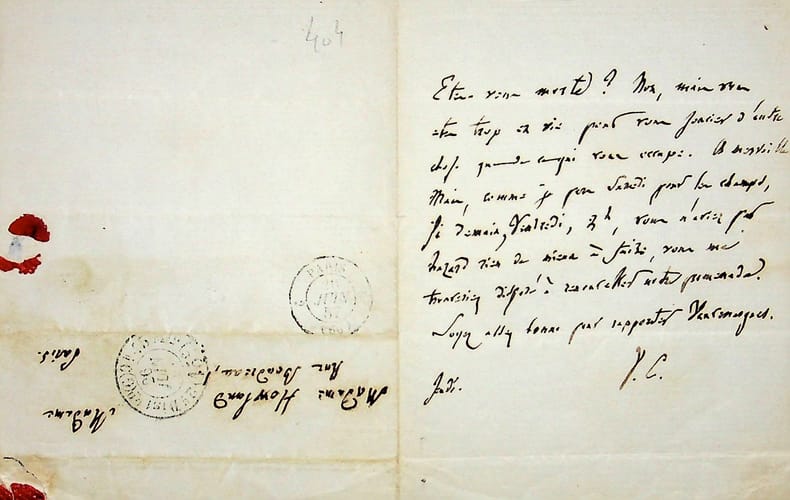 404
Etes-vous morte ? Non, mais vous
êtes trop en vie pour vous soucier d'autre
chose que de ce qui vous occupe. A merveille
Mais, comme je pars Samedi pour les champs,
Si demain, Vendredi, 2h, vous n'aviez par
hazard rien de mieux à faire, vous me
trouveriez disposé à renouveller notre promenade.
Soyez assez bonne pour rapporter
Jeudi.
PARIS
JUIN
Madame
Madame Howland
Rue
Paris.